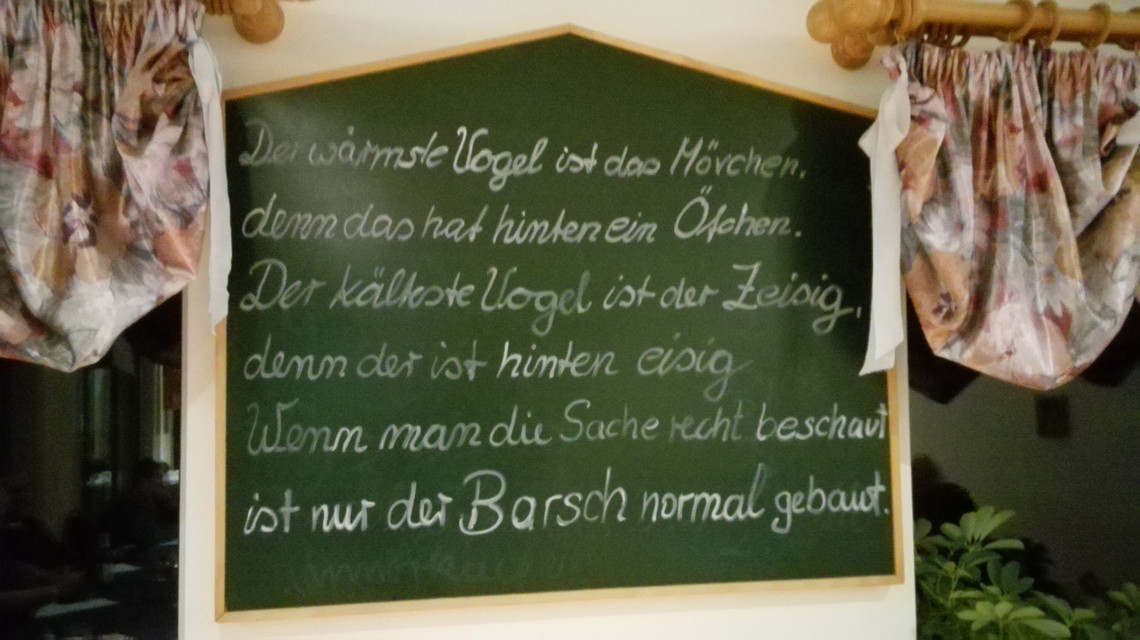 Der wärmste Vogel ist das Mövchen,
denn das hat hinten ein Öfchen.
Der kälteste Vogel ist der Zeisig,
denn der ist hinten eisig
Wenn man die Sache recht beschaut
ist nur der Barsch normal gebaut.